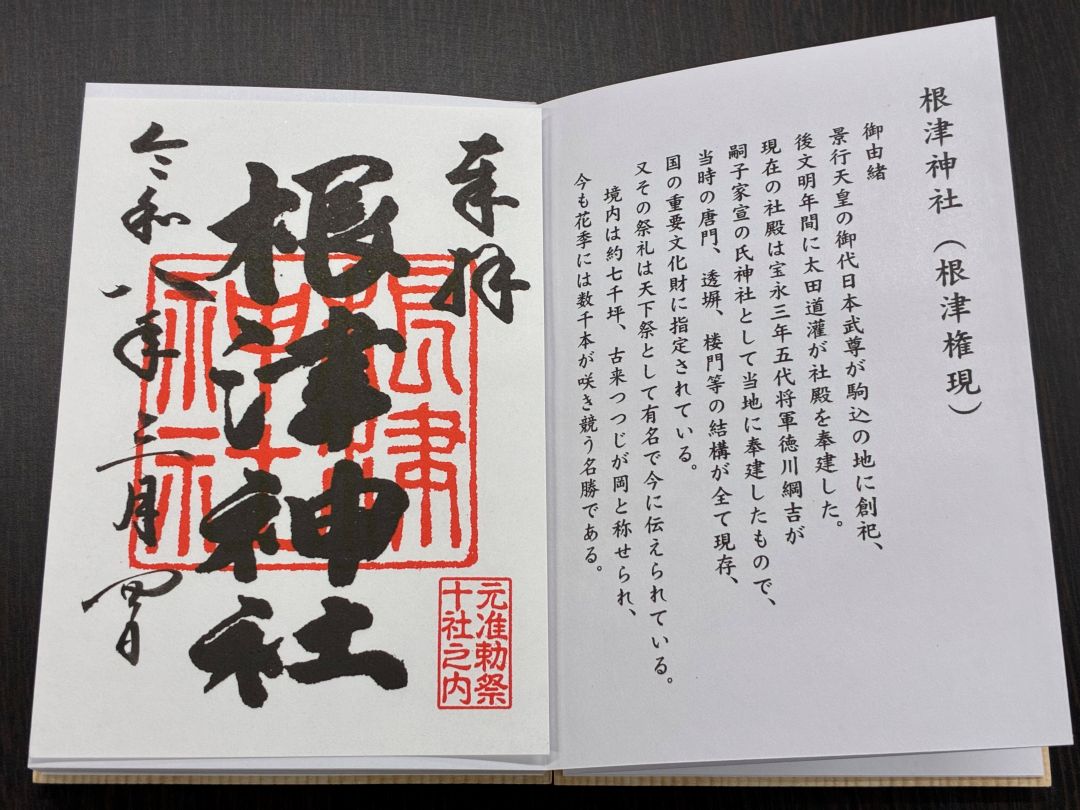 根津神社（根津権現）
御由緒
景行天皇の御代日本武尊が駒込の地に創祀、
後文明年間に太田道灌が社殿を奉建した。
現在の社殿は宝永三年五代将軍徳川綱吉が
嗣子家宣の氏神社として当地に奉建したもので、
当時の唐門、透塀、楼門等の結構が全て現存、
国の重要文化財に指定されている。
又その祭礼は天下祭として有名で今に伝えられている。
境内は約七千坪、古来つつじが岡と称せられ、
今も花季には数千本が咲き競う名勝である。
奉拝
根津神社
令和八年三月四日
根津
神社
元准勅祭
十社之内